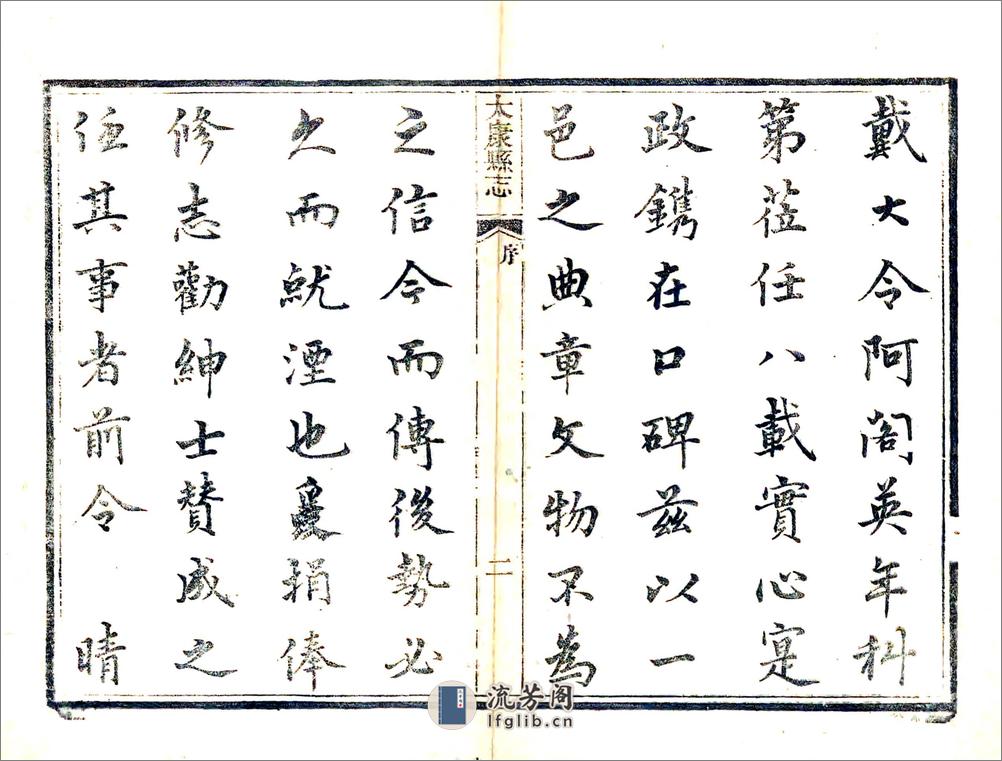 戴大令阿閣英年科
第蒞任八載實心寔
政鐫在口碑茲以一
邑之典章文物不為
太康縣志
序
二
之信今而傳後勢必
久而就湮也爰捐俸
修志勸紳士贊成之
任其事者前令　晴
流芳阁
lfglib.cn